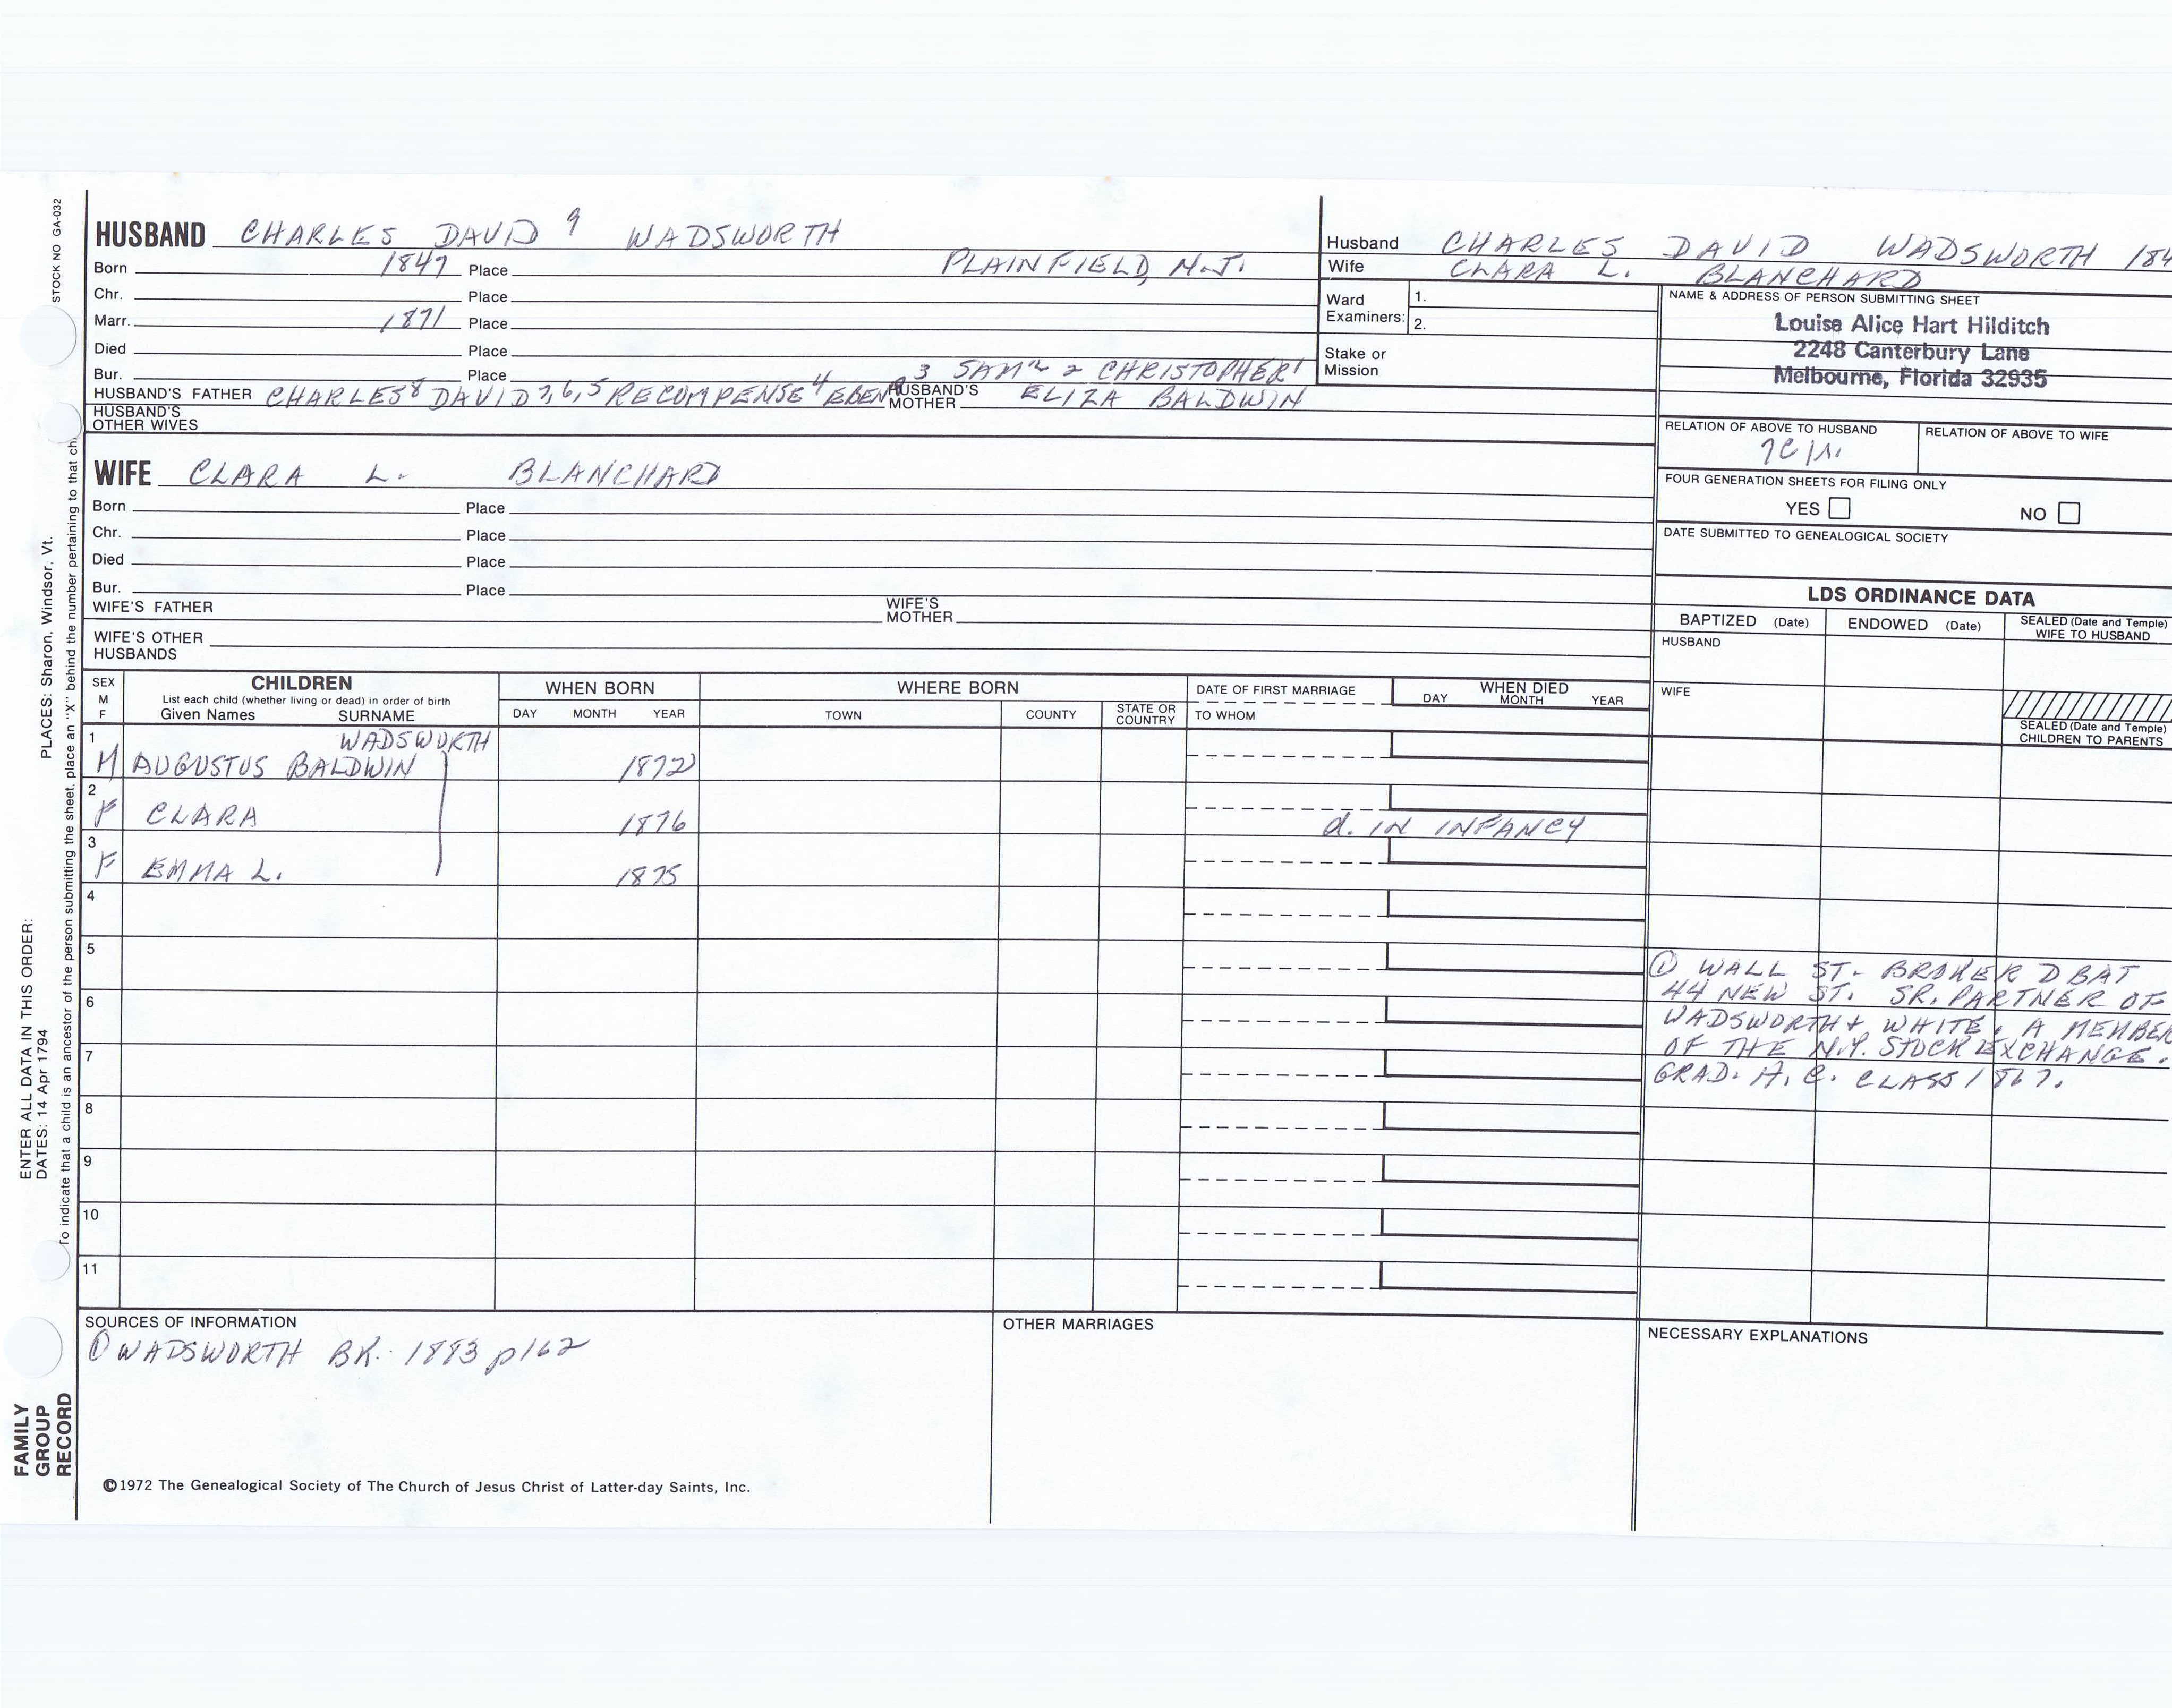 STOCK NO GA-032
PLACES: Sharon, Windsor, Vt.
To indicate that a child is an ancestor of the person submitting the sheet, place an "X" behind the number pertaining to that ch
ENTER ALL DATA IN THIS ORDER:
DATES: 14 Apr 1794
FAMILY
GROUP
RECORD
HUSBAND CHARLES DAVID 9 WADSWORTH
Born 1847 Place PLAINFIELD, N.J.
Chr. Place
Marr. 1871 Place
Died Place
Bur. Place 3 SAM'L 2 CHRISTOPHER 1
HUSBAND'S FATHER CHARLES 8 DAVID 7,6,5 RECOMPENSE 4 EBEN HUSBAND'S MOTHER ELIZA BALDWIN
HUSBAND'S
OTHER WIVES
WIFE CLARA L. BLANCHARD
Born Place
Chr. Place
Died Place
Bur. Place
WIFE'S FATHER WIFE'S MOTHER
WIFE'S OTHER
HUSBANDS
Husband CHARLES DAVID WADSWORTH 184
Wife CLARA L. BLANCHARD
Ward
Examiners:
1.
2.
Stake or
Mission
NAME & ADDRESS OF PERSON SUBMITTING SHEET
Louise Alice Hart Hilditch
2248 Canterbury Lane
Melbourne, Florida 32935
RELATION OF ABOVE TO HUSBAND RELATION OF ABOVE TO WIFE
FOUR GENERATION SHEETS FOR FILING ONLY
YES NO
DATE SUBMITTED TO GENEALOGICAL SOCIETY
LDS ORDINANCE DATA
BAPTIZED (Date) ENDOWED (Date) SEALED (Date and Temple)
WIFE TO HUSBAND
HUSBAND
WIFE
SEALED (Date and Temple)
CHILDREN TO PARENTS
SEX
M
F
CHILDREN
List each child (whether living or dead) in order of birth
Given Names SURNAME
WHEN BORN
DAY MONTH YEAR
WHERE BORN
TOWN COUNTY STATE OR COUNTRY
DATE OF FIRST MARRIAGE
TO WHOM
WHEN DIED
DAY MONTH YEAR
1 WADSWORTH
M AUGUSTUS BALDWIN 1872
2
F CLARA 1876 d. IN INFANCY
3
F EMMA L. 1875
4
5
6
7
8
9
10
11
① WALL ST. BROKER D BAT
44 NEW ST. SR. PARTNER OF
WADSWORTH & WHITE. A MEMBER
OF THE N.Y. STOCK EXCHANGE.
GRAD. A. C. CLASS 1867.
SOURCES OF INFORMATION
① WADSWORTH BK. 1883 p162
OTHER MARRIAGES
NECESSARY EXPLANATIONS
©1972 The Genealogical Society of The Church of Jesus Christ of Latter-day Saints, Inc.